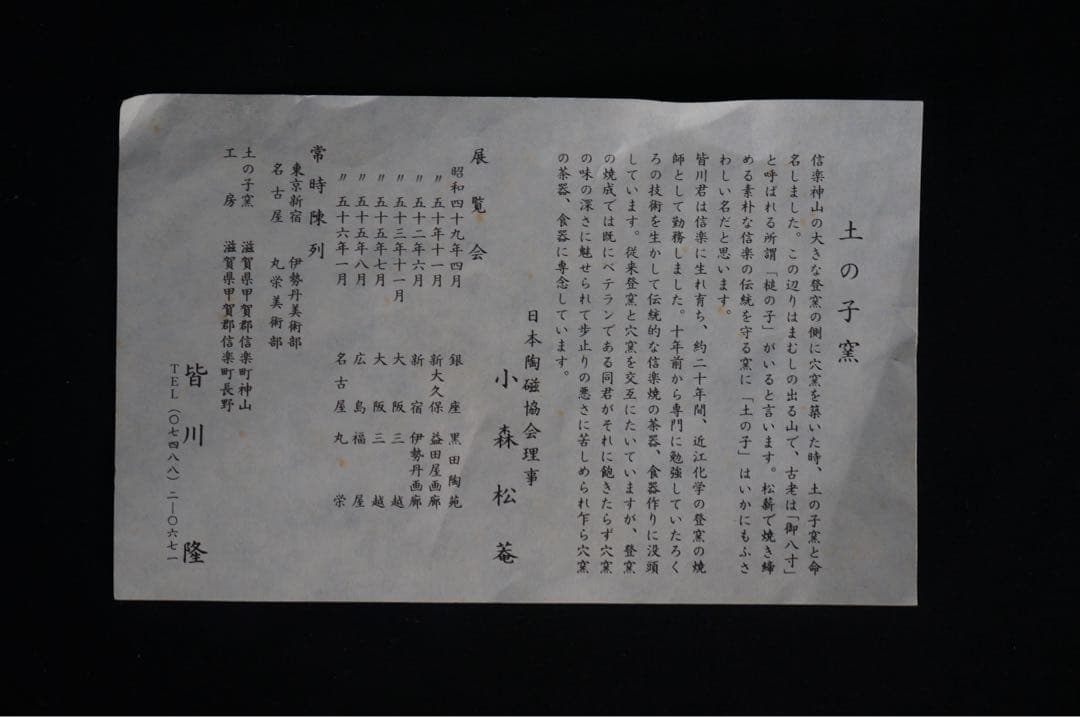 土の子窯
信楽神山の大きな登窯の側に穴窯を築いた時、土の子窯と命
名しました。この辺りはまむしの出る山で、古老は「御八寸」
と呼ばれる所謂「槌の子」がいると言います。松薪で焼き締
める素朴な信楽の伝統を守る窯に「土の子」はいかにもふさ
わしい名だと思います。
皆川君は信楽に生れ育ち、約二十年間、近江化学の登窯の焼
師として勤務しました。十年前から専門に勉強していたろく
ろの技術を生かして伝統的な信楽焼の茶器、食器作りに没頭
しています。従来登窯と穴窯を交互にたいていますが、登窯
の焼成では既にベテランである同君がそれに飽きたらず穴窯
の味の深さに魅せられて歩止りの悪さに苦しめられ乍ら穴窯
の茶器、食器に専念しています。
日本陶磁協会理事
小森松菴
展覧会
昭和四十九年四月 銀座 黒田陶苑
〃 五十年十一月 新大久保 益田屋画廊
〃 五十二年六月 新宿 伊勢丹画廊
〃 五十三年十一月 大阪 三越
〃 五十五年七月 大阪 三越
〃 五十五年八月 広島 福屋
〃 五十六年一月 名古屋 丸栄
常時陳列
東京新宿 伊勢丹美術部
名古屋 丸栄美術部
土の子窯 滋賀県甲賀郡信楽町神山
工房 滋賀県甲賀郡信楽町長野
皆川隆
TEL(〇七四八八)二―〇六七一